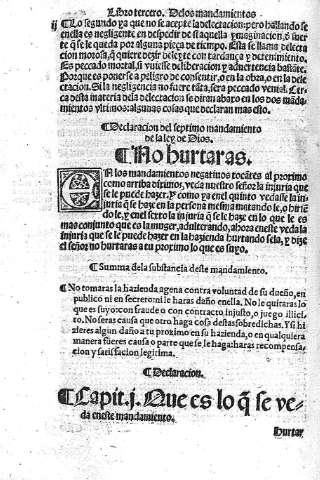 Libro tercero. Delos mandamientos
ij
¶Lo segundo ya que no se acepte la delectacion: pero hallando se
enella es negligente en despedir de si aquella ymaginacion, o suer
te q̃ se le queda por alguna pieça de tiempo. Esta se llama delecta
cion morosa, q̃ quiere dezir deleyte con tardança y detenimiento.
Es peccado mortal, si vuiesse deliberacion y aduertencia bastãte.
Porque os ponerse a peligro de consentir, o en la obra, o en la dele
ctacion. Si la negligencia no fuere tãta, sera peccado venial. Cer
ca desta materia dela delectacion se diran abaxo en los dos mãda
mientos vltimos: algunas cosas que declaran mas esto.
¶Declaracion del septimo mandamiento
de la ley de Dios.
¶No hurtaras.
EN los mandamientos negatiuos tocãtes al proximo
como arriba diximos, veda nuestro señor la injuria que
se le puede hazer. Y como ya en el quinto vedasse la in-
juria q̃ se haze en la persona mesma matando le, o hiriẽ
do le, y en el sexto la injuria q̃ se le haze en lo que le es
mas conjunto que es la muger, adulterando, ahora en este veda la
injuria que se le puede hazer en la hazienda hurtando sela, y dize
el señor no hurtaras a tu proximo lo que es suyo.
¶Summa dela substancia deste mandamiento.
¶No tomaras la hazienda agena contra voluntad de su dueño, en
publico ni en secreto: ni le haras daño enella. No le quitaras lo
que es suyo: con fraude o con contracto injusto, o juego illici-
to. No seras causa que otro haga cosa destas sobredichas. Y si hi
zieres algun daño a tu proximo en su hazienda, o en qualquiera
manera fueres causa o parte que se le haga: haras recompensa-
cion y satisfacion legitima.
¶Declaracion.
¶Capit. j. Que es lo q̃ se ve-
da eneste mandamiento.
Hurtar